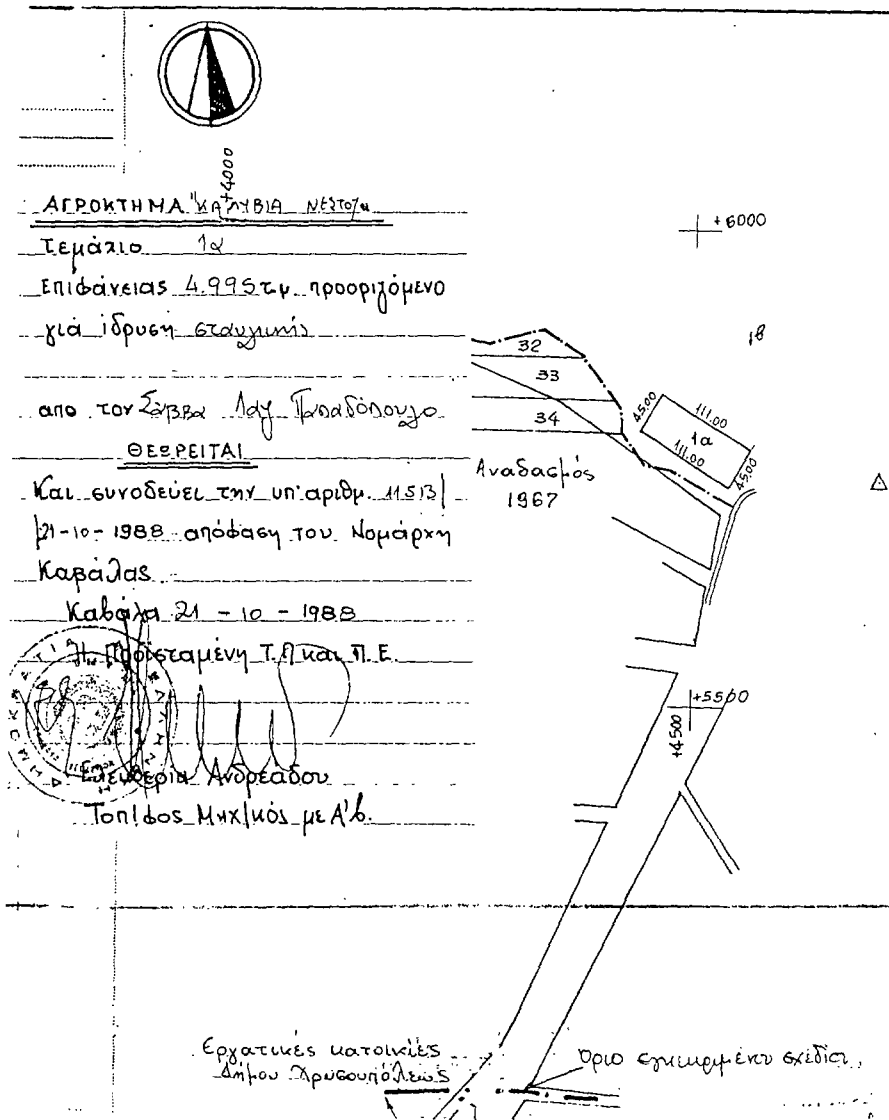 +4000
ΑΓΡΟΚΤΗΜΑ "ΚΑΛΥΒΙΑ
Τεμάχιο 1α
Επιφάνειας 4.995 τ.μ. προοριζόμενο
για ίδρυση σταυλικής
απο τον Σάββα Λαζ Παπαδόπουλο
ΘΕΩΡΕΙΤΑΙ
Και συνοδεύει την υπ' αριθμ. 11513/
/21-10-1988 απόφαση του Νομάρχη
Καβάλας
Καβάλα 21-10-1988
Η Προϊσταμένη Τ.Π και Π.Ε.
Ελευθερία Ανδρεάδου
Τοπ/φος Μηχ/κός με Α'β.
+6000
1β
32
33
34
45.00
111.00
1α
111.00
45.00
Αναδασμός
1967
+5500
+4500
Εργατικές κατοικίες
Δήμου Χρυσουπόλεως
Όριο εγκεκριμένου σχεδίου